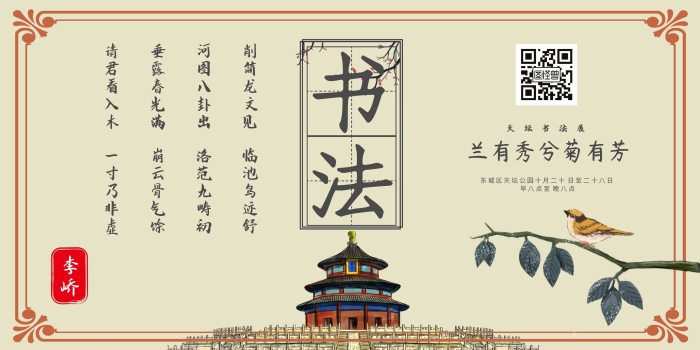 削简龙文见 临池鸟迹舒
河图八卦出 洛范九畴初
垂露春光满 崩云骨气馀
请君看入木 一寸乃非虚
李峤
书法
图怪兽
天坛书法展
兰有秀兮菊有芳
东城区天坛公园十月二十日至二十八日
早八点至晚八点